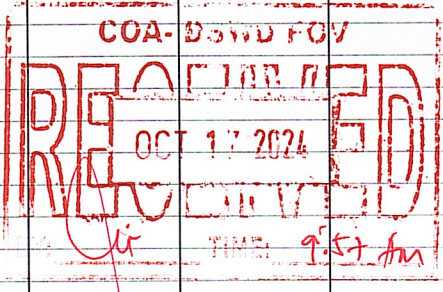 COA-DSWD FOV
RECEIVED
OCT 17 2024
TIME: 9:57 Am